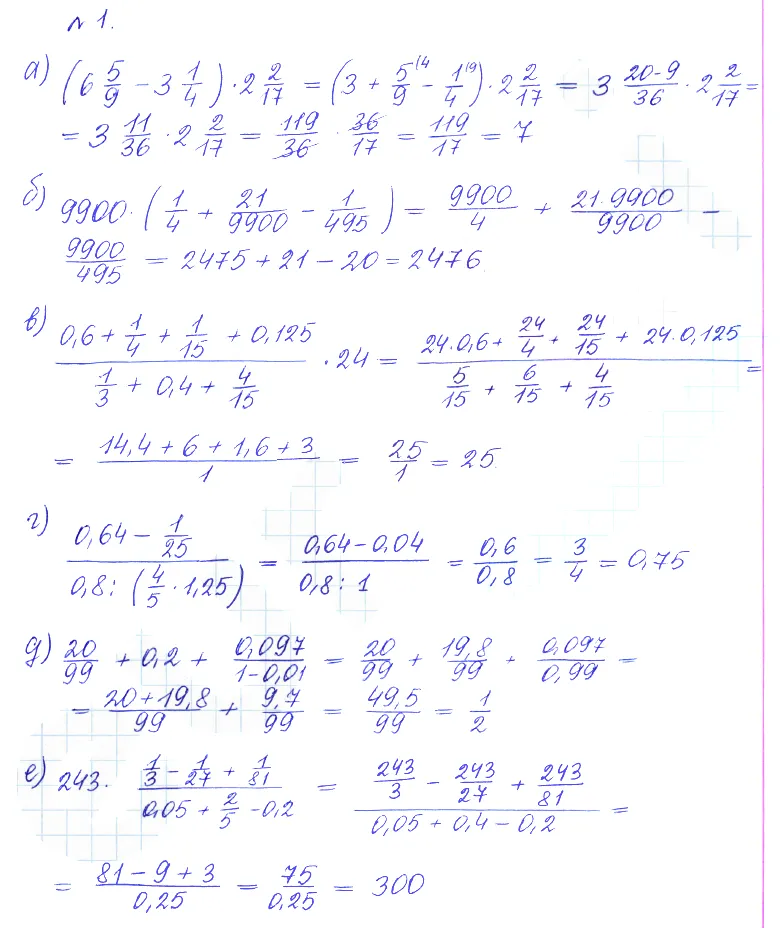 № 1.
а) (6 5/9 - 3 1/4) · 2 2/17 = (3 + 5/9 ⁽⁴ - 1/4 ⁽⁹) · 2 2/17 = 3 (20-9)/36 · 2 2/17 =
= 3 11/36 · 2 2/17 = 119/36 · 36/17 = 119/17 = 7
б) 9900 · (1/4 + 21/9900 - 1/495) = 9900/4 + (21·9900)/9900 -
9900/495 = 2475 + 21 - 20 = 2476
в) (0,6 + 1/4 + 1/15 + 0,125)/(1/3 + 0,4 + 4/15) · 24 = (24·0,6 + 24/4 + 24/15 + 24·0,125)/(5/15 + 6/15 + 4/15) =
= (14,4 + 6 + 1,6 + 3)/1 = 25/1 = 25.
г) (0,64 - 1/25)/(0,8 : (4/5 · 1,25)) = (0,64 - 0,04)/(0,8 : 1) = 0,6/0,8 = 3/4 = 0,75
д) 20/99 + 0,2 + 0,097/(1-0,01) = 20/99 + 19,8/99 + 0,097/0,99 =
= (20+19,8)/99 + 9,7/99 = 49,5/99 = 1/2
е) 243 · (1/3 - 1/27 + 1/81)/(0,05 + 2/5 - 0,2) = (243/3 - 243/27 + 243/81)/(0,05 + 0,4 - 0,2) =
= (81 - 9 + 3)/0,25 = 75/0,25 = 300